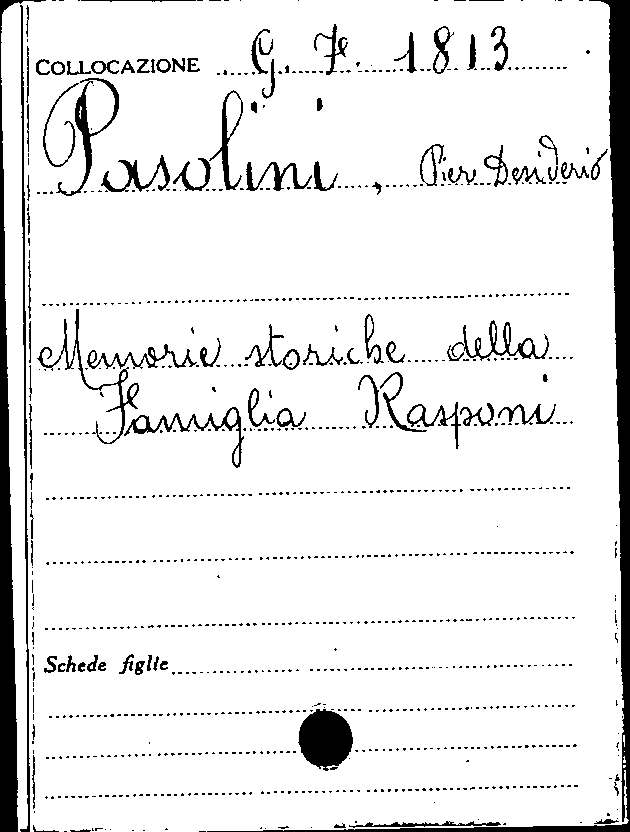 COLLOCAZIONE G. F. 1813
Pasolini, Pier Desiderio
Memorie storiche della
Famiglia Rasponi
Schede figlie